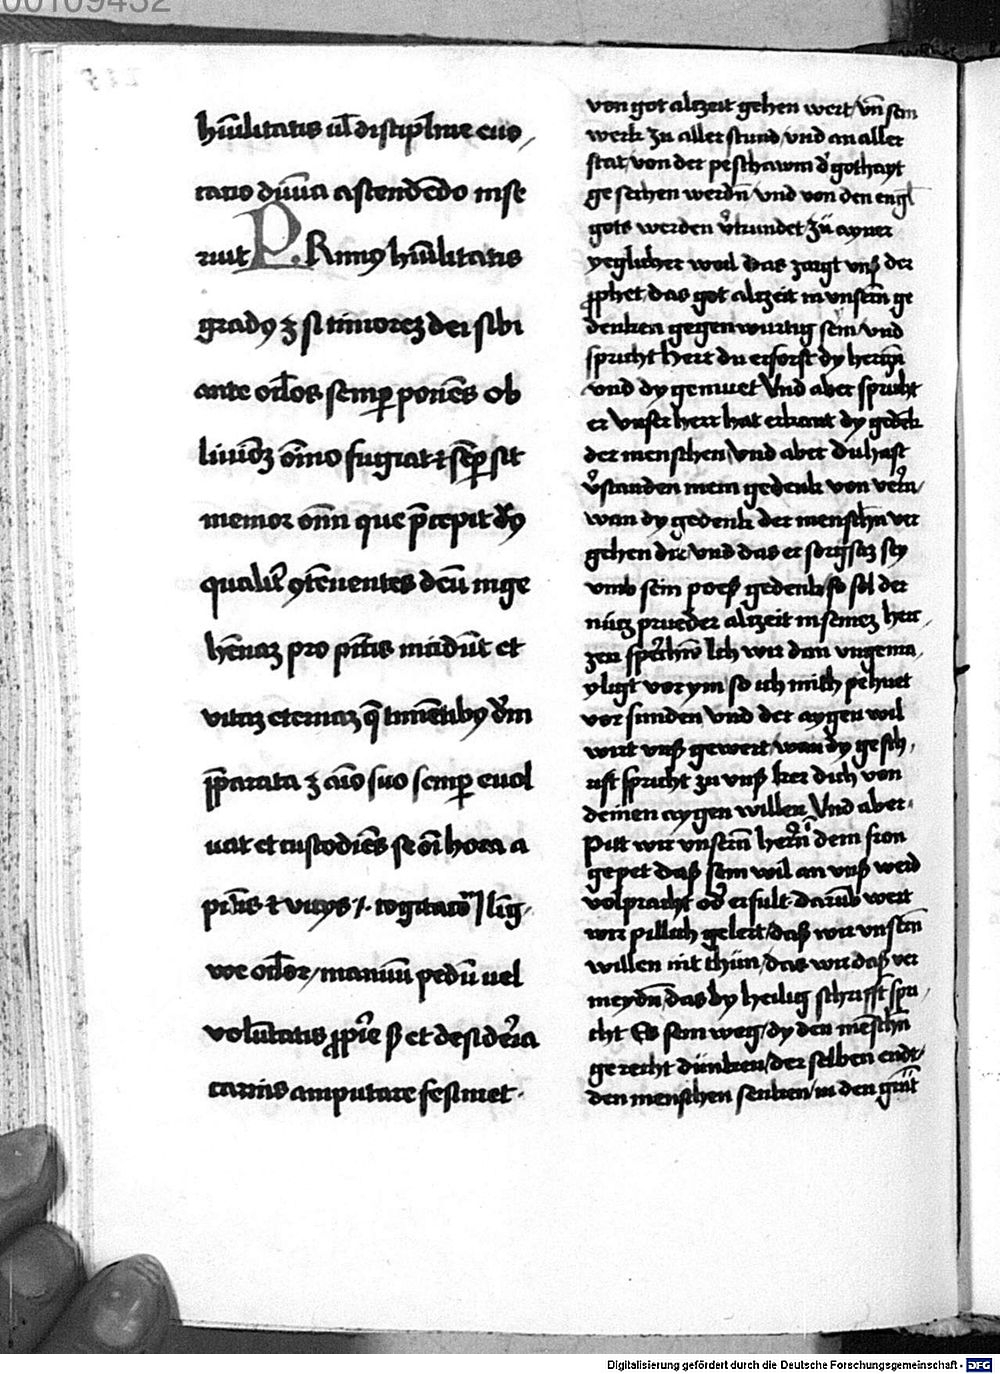 00109432
hūilitatis ul̄ disciplīne euo,
catio diuīa ascendēdo inse
ruit PRimꝰ hūilitatis
gradꝰ ꝫ si timorez dei sibi
ante ocl̄os semꝑ ponēs ob
liuiōez om̄ino fugiat ⁊ sēꝑ sit
memor om̄n que p̄cepit dꝰ
qualit̾ ꝯtēnentes deū in ge
hēnaz pro pctī̄s incidūt et
vitaz eternaz q̄ timētibꝰ dm̄
p̄parata ꝫ aīo suo semꝑ euol
uat et custodiēs se oī hora a
pctī̄s ⁊ vicijs /. cogitatōū līg-
we ocl̄oꝝ / manuū pedū uel
volūtatis ꝓprie ß et desid̾ia
carnis amputare festinet ·
von got altzeit gesehen wert / vn̄ sein
werk zu aller stund / vnd an aller
stat / von der peschawm d̾ gothayt
gesechen werdn̄ / vnd von den engl
gots werden v̾kundet zü ayner
yeglicher weil Das zaigt vnß der
prophet / das got altzeit in vnsern̄ ge
denken gegenwurtig sein / vnd
spricht Herr du erforst dy herczn̄
vnd dy gemuet Vnd aber spricht
er Vnser herr hat erkant dy gedēk
der menschen / Vnd aber Du hast
v̾standen mein gedenk von vern̄ /
wan dy gedenk der menschn̄ ver
gehen dir / vnd das er sorgsaz sey
vmb sein poeß gedenk so sol der
nücz prueder altzeit in seinez her,
zen sprechn̄ Ich wir dan vngema,
yligt vor ym / so ich mich pehuet
vor sunden Vnd der aygen wil
wirt vnß gewert / wan dy gesch,
rift spricht zu vnß ker dich von
deinen aygen willen Vnd aber
Pitt wir vnsern̄ hern̄ ī dem fron
gepet daß sein wil an vnß werd
volpracht od̾ erfult · darūb wert
wir pillich gelert / daß wir vnsern̄
willen nit thün / das wir daß ver
meydn̄ / das dy heilig schrifft spri,
cht Es sein weg / dy den mēschn̄
gerecht dünken / der selben endt /
den menschen senken / in den grūt
Digitalisierung gefördert durch die Deutsche Forschungsgemeinschaft - DFG